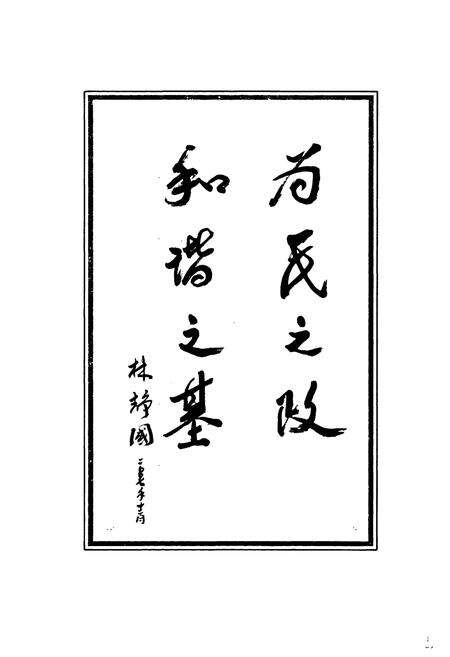 为民之政
和谐之基
林静國
二〇〇七年十二月